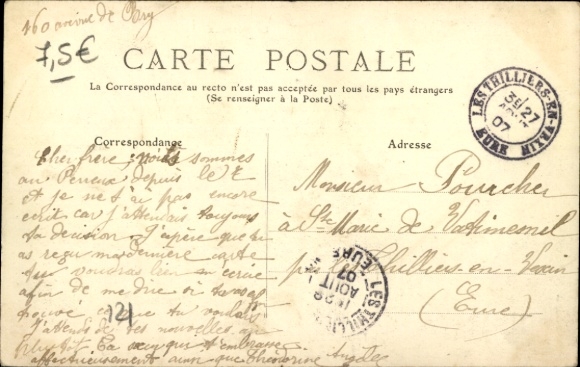 160 avenue de
7,5€
CARTE POSTALE
La Correspondance au recto n'est pas acceptée par tous les pays étrangers
(Se renseigner à la Poste)
LES THILLIERS-EN-VEXIN
3E / 27
AOUT
07
EURE
Correspondance
Adresse
Cher frère, nous sommes
au Perreux depuis le
et je ne t'ai pas encore
écrit car j'attendais toujours
ta décision J'espère que tu
as reçu ma dernière carte
tu voudras bien
afin de me dire si
trouvé que tu voulais
J'attends de tes nouvelles au
plus tôt Ta sœur qui t'embrasse
affectueusement ainsi que Angèle
121
Monsieur Pourcher
à Ste Marie de Vatimesnil
par les Thilliers-en-Vexin
(Eure)
LES THILLIERS
28
AOUT
07
EURE